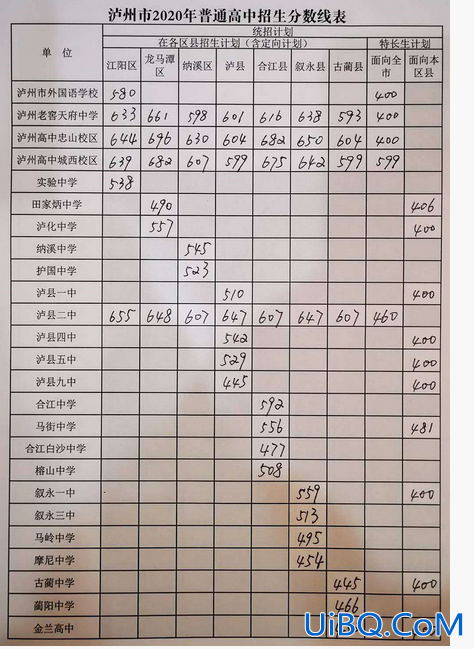 泸州市2020年普通高中招生分数线表
单 位 统招计划
在各区县招生计划（含定向计划） 特长生计划
江阳区 龙马潭区 纳溪区 泸县 合江县 叙永县 古蔺县 面向全市 面向本区县
泸州市外国语学校 580 400
泸州老窖天府中学 633 661 598 601 616 638 593 400
泸州高中忠山校区 644 696 630 604 682 650 604 400
泸州高中城西校区 639 682 607 599 675 642 599 599
实验中学 538
田家炳中学 490 406
泸化中学 557 400
纳溪中学 545
护国中学 523
泸县一中 510 400
泸县二中 655 648 607 647 607 647 607 460
泸县四中 542 400
泸县五中 529 400
泸县九中 445 400
合江中学 592
马街中学 556 481
合江白沙中学 477
榕山中学 508
叙永一中 559 400
叙永三中 513
马岭中学 495
摩尼中学 454
古蔺中学 445 400
蔺阳中学 466
金兰高中
UiBQ.CoM